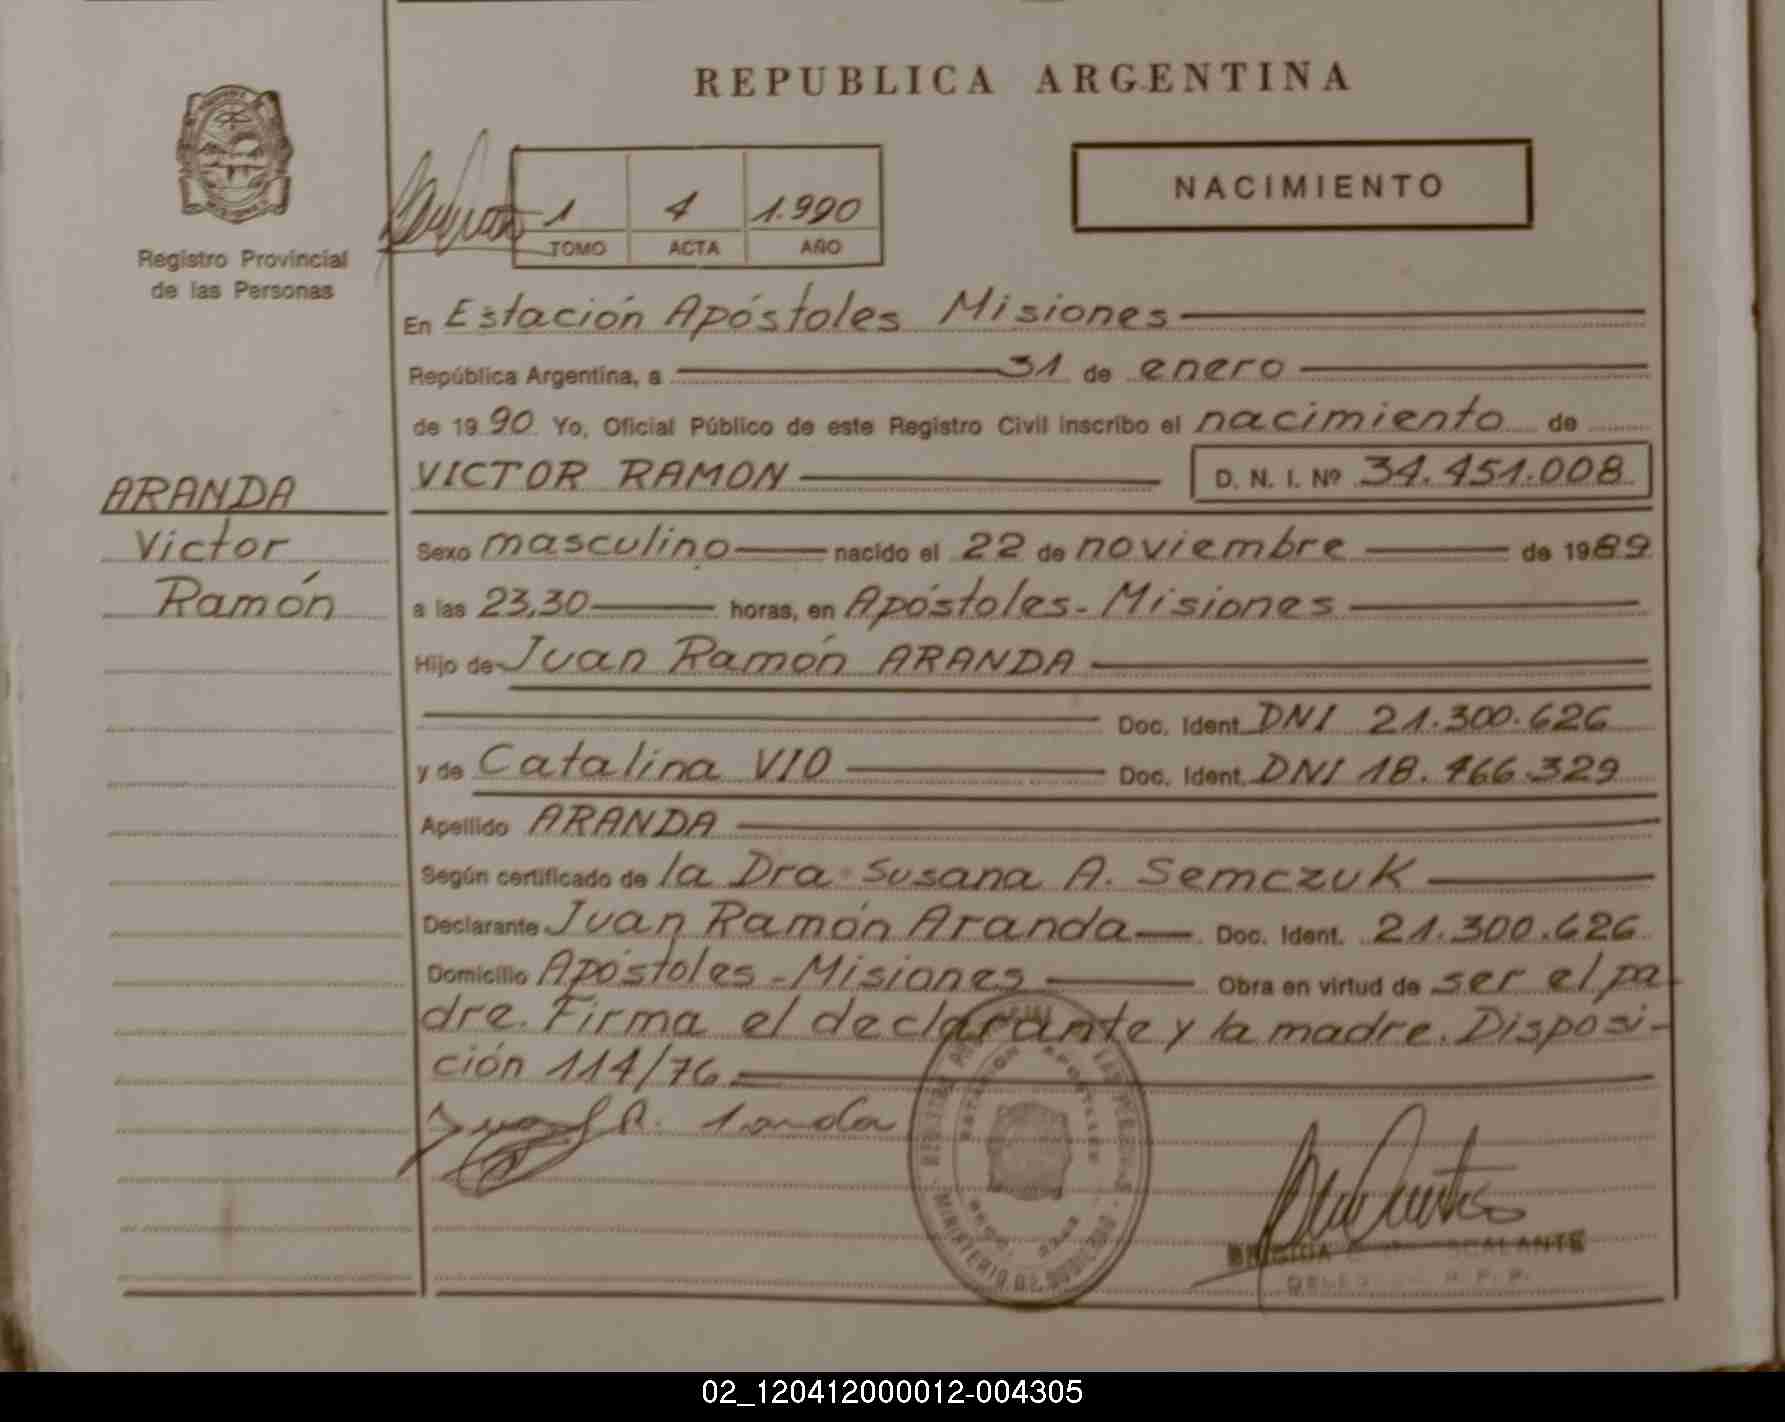 REPUBLICA ARGENTINA
NACIMIENTO
1 4 1.990
TOMO ACTA AÑO
Registro Provincial
de las Personas
En Estación Apóstoles Misiones
República Argentina, a 31 de enero
de 1990 Yo, Oficial Público de este Registro Civil inscribo el nacimiento de
VICTOR RAMON D. N. I. Nº 34.451.008
ARANDA
Victor
Ramón
Sexo masculino nacido el 22 de noviembre de 1989
a las 23,30 horas, en Apóstoles-Misiones
Hijo de Juan Ramón ARANDA
Doc. Ident. DNI 21.300.626
y de Catalina VIO Doc. Ident. DNI 18.466.329
Apellido ARANDA
Según certificado de la Dra Susana A. Semczuk
Declarante Juan Ramón Aranda Doc. Ident. 21.300.626
Domicilio Apóstoles-Misiones Obra en virtud de ser el pa-
dre. Firma el declarante y la madre. Disposi-
ción 114/76
ESTACION APOSTOLES
MINISTERIO DE GOBIERNO
ESCALANTE
02_120412000012-004305